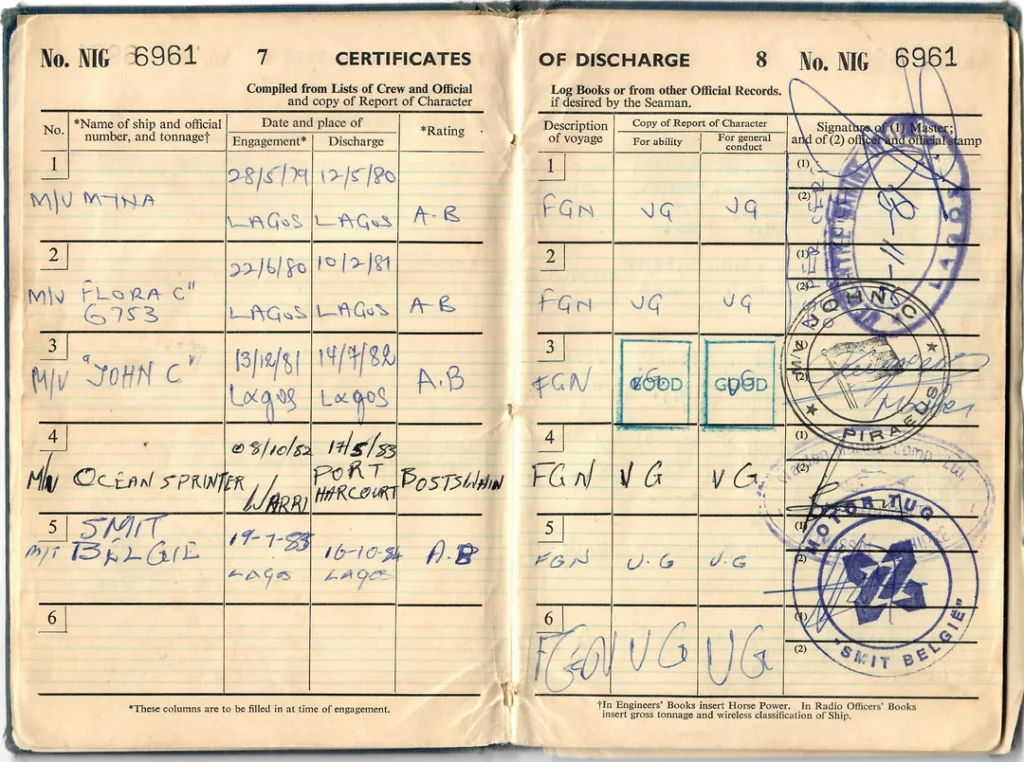 No. NIG 6961 7 CERTIFICATES
Compiled from Lists of Crew and Official
and copy of Report of Character
No.
*Name of ship and official
number, and tonnage†
Date and place of
Engagement*
Discharge
*Rating
1
28/5/79 12/5/80
M/V MTNA
LAGOS LAGOS A.B
2
22/6/80 10/2/81
M/V FLORA C"
6753
LAGOS LAGOS AB
3
13/12/81 14/7/82
M/V "JOHN C"
Lagos Lagos A.B
4
08/10/82 17/5/83
M/V OCEAN SPRINTER
WARRI
PORT
HARCOURT
BOSTSWAIN
5
SMIT
M/T BELGIE
19-7-83
16-10-84
LAGOS LAGOS
A.B
6
*These columns are to be filled in at time of engagement.
OF DISCHARGE 8 No. NIG 6961
Log Books or from other Official Records.
if desired by the Seaman.
Description
of voyage
Copy of Report of Character
For ability
For general
conduct
Signature of (1) Master;
and of (2) officer and official stamp
1
(1)
(2)
FGN VG VG
2
(1)
(2)
FGN VG VG
3
(1)
(2)
FGN GOOD GOOD
4
(1)
(2)
FGN VG VG
5
(1)
(2)
FGN V.G V.G
6
(1)
(2)
FGN VG VG
LAGOS
M/V JOHN C
PIRAEUS
Master
MOTOR TUG
"SMIT BELGIË"
†In Engineers' Books insert Horse Power. In Radio Officers' Books
insert gross tonnage and wireless classification of Ship.